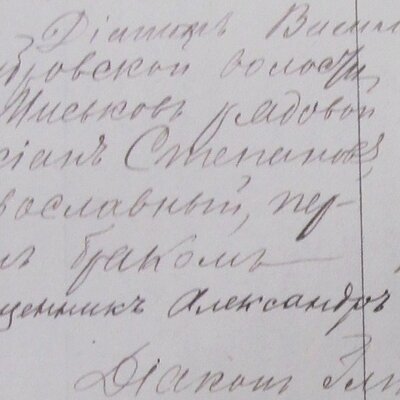 Діаконъ Васил
тровской волости,
Миськовъ рядовой
сіанъ Степановъ,
вославный, пер-
мъ бракомъ
щенникъ Александръ
Діаконъ